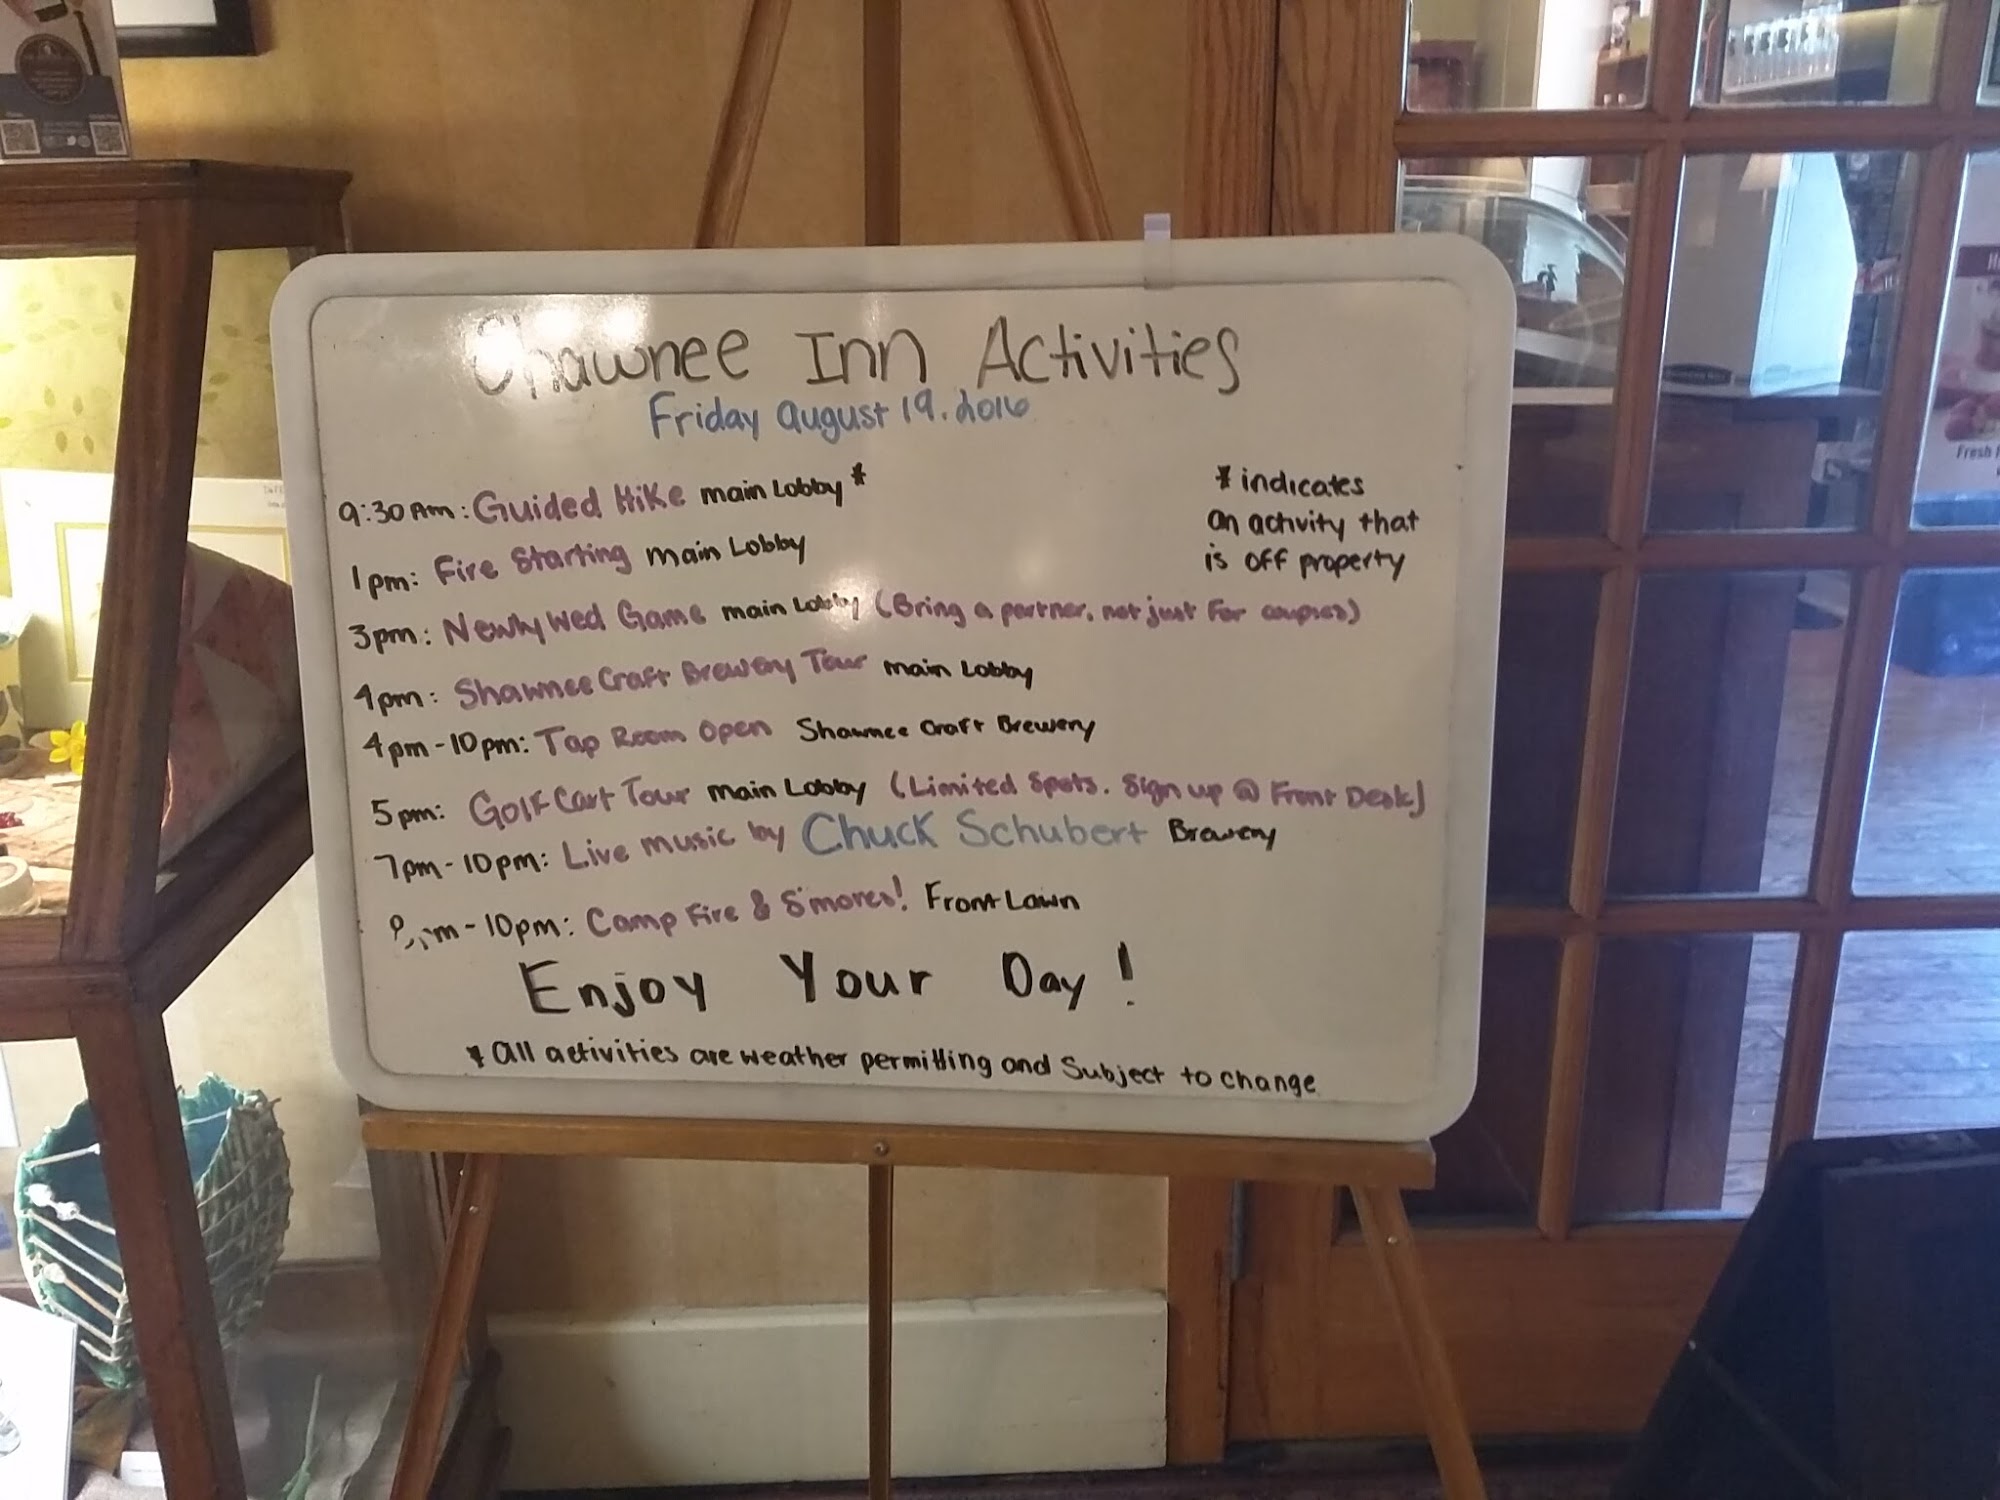 Shawnee Inn Activities
Friday August 19. 2016
9:30 Am: Guided Hike main Lobby *
* indicates
an activity that
is off property
1pm: Fire Starting main Lobby
3pm: Newly Wed Game main Lobby (Bring a partner, not just for couples)
4pm: Shawnee Craft Brewery Tour main Lobby
4pm-10pm: Tap Room Open Shawnee Craft Brewery
5pm: Golf Cart Tour main Lobby (Limited Spots. Sign up @ Front Desk)
7pm-10pm: Live music by Chuck Schubert Brewery
-10pm: Camp Fire & S'mores! Front Lawn
Enjoy Your Day!
* All activities are weather permitting and Subject to change
Fresh